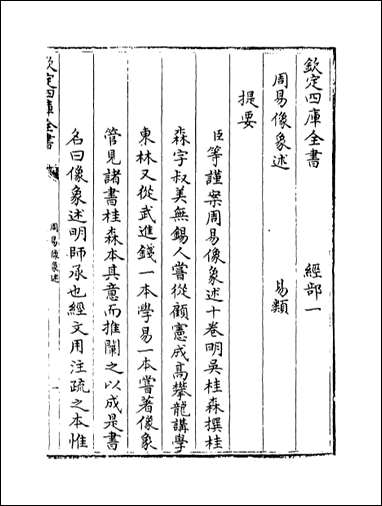 欽定四庫全書　經部一
周易像象述　易類
提要
臣等謹案周易像象述十卷明吳桂森撰桂
森字叔美無錫人嘗從顧憲成高攀龍講學
東林又從武進錢一本學易一本嘗著像象
管見諸書桂森本其意而推闡之以成是書
名曰像象述明師承也經文用注疏之本惟
欽定四庫全書
周易像象述
一